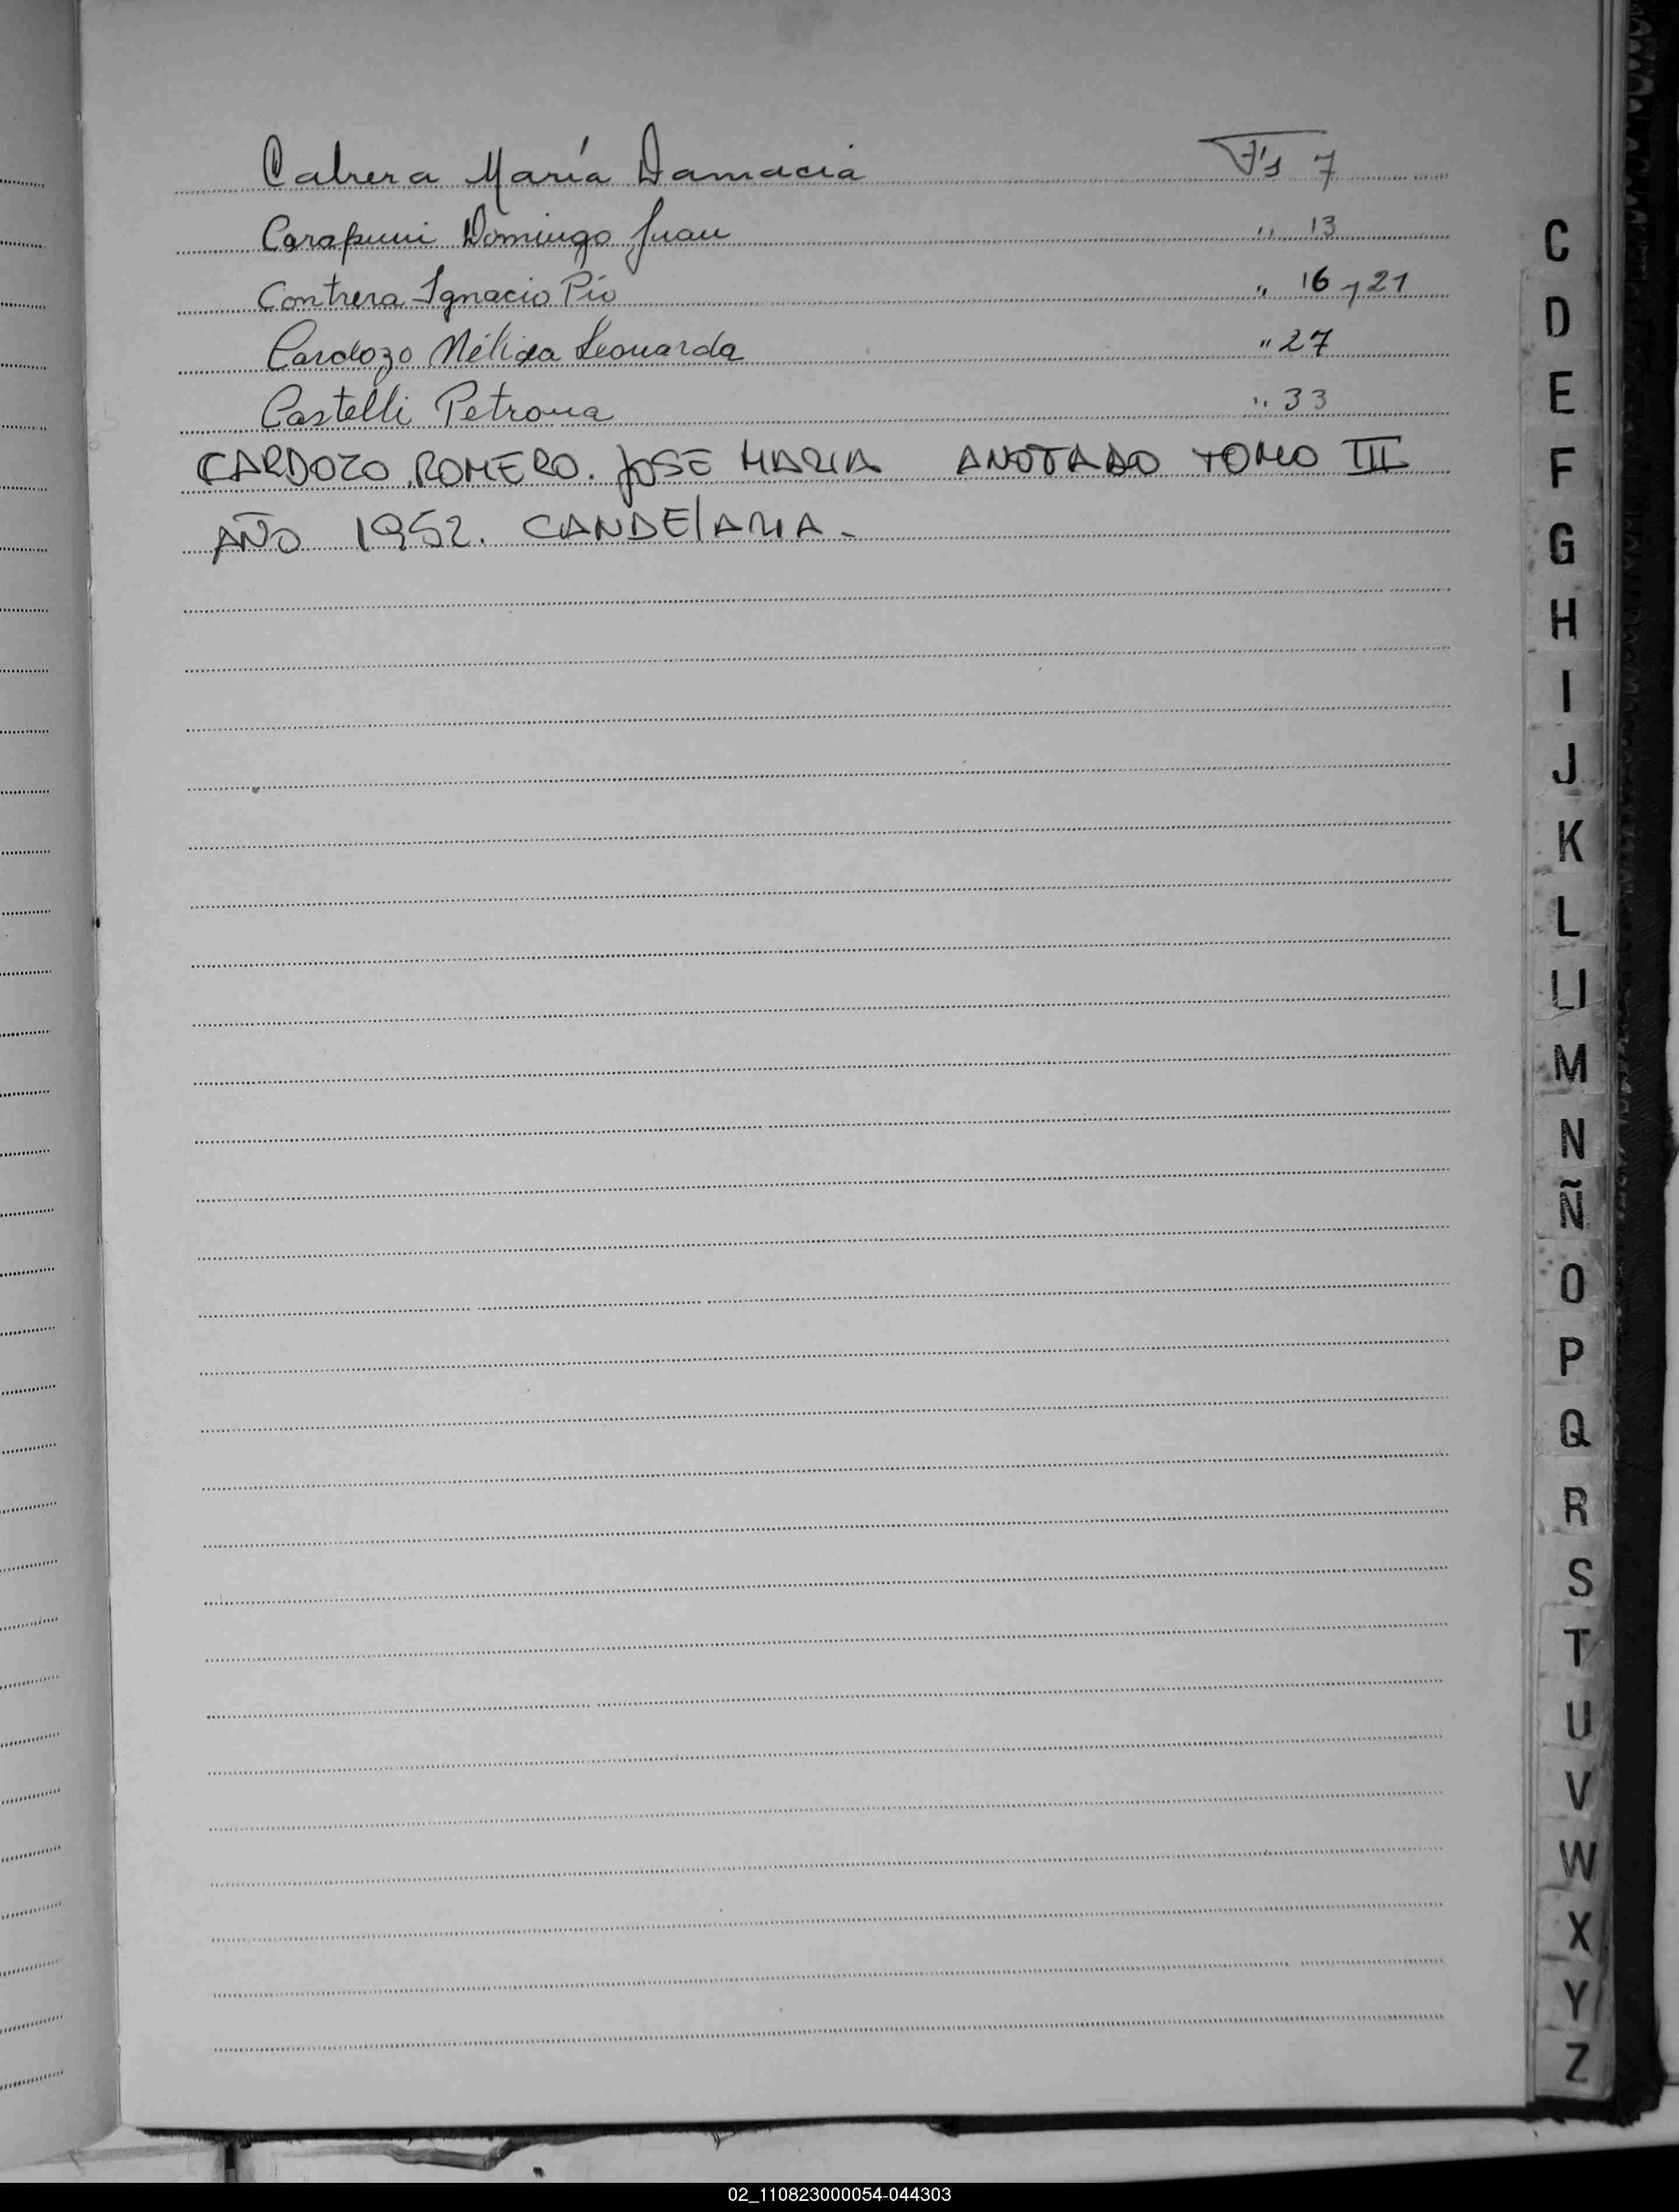 Cabrera María Damacia F's 7
Carapuni Domingo Juan " 13
Contrera Ignacio Pío " 16 y 21
Cardozo Nélida Leonarda " 27
Castelli Petrona " 33
CARDOZO ROMERO. JOSE MARIA ANOTADO TOMO III
AÑO 1952. CANDELARIA.
C
D
E
F
G
H
I
J
K
L
Ll
M
N
Ñ
O
P
Q
R
S
T
U
V
W
X
Y
Z
02_110823000054-044303